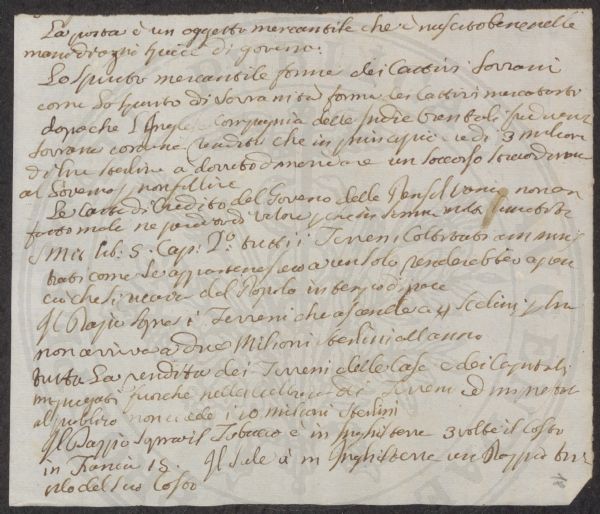 La posta è un oggetto mercantile che è riuscito bene nelle
mani di ogni specie di governo.
Lo spirito mercantile forma dei Cattivi Sovrani
come lo spirito di Sovranità forma dei Cattivi mercatanti
dopo che l'Inglese Compagnia delle Indie Orientali
Sovrana con una rendita che in principio 3 milioni
di lire sterline a dovuto dimandare un soccorso straordinario
al Governo non fallire
Le Carte di Credito del Governo delle Pensilvania non an
fatto male ne perduto di valore
Smit lib. 5. Cap. 2.º tutti i Terreni Coltivati
come se appartenessero a un solo renderebbero
ciò che si ricava dal Popolo in tempo di pace
Il Dazio sopra i Terreni che ascende a 4 Scelini
non arriva a due Milioni sterlini all anno
tutta La rendita dei Terreni delle Case e dei Capitali
impiegati fuorché nella dei Terreni ed
al publico non eccede i 10 milioni sterlini
Il Dazzio sopra il Tabacco è in Inghilterra 3 volte il Costo
in Francia 15. Il Sale à in Inghilterra un Dazzio tri
plo del suo Costo